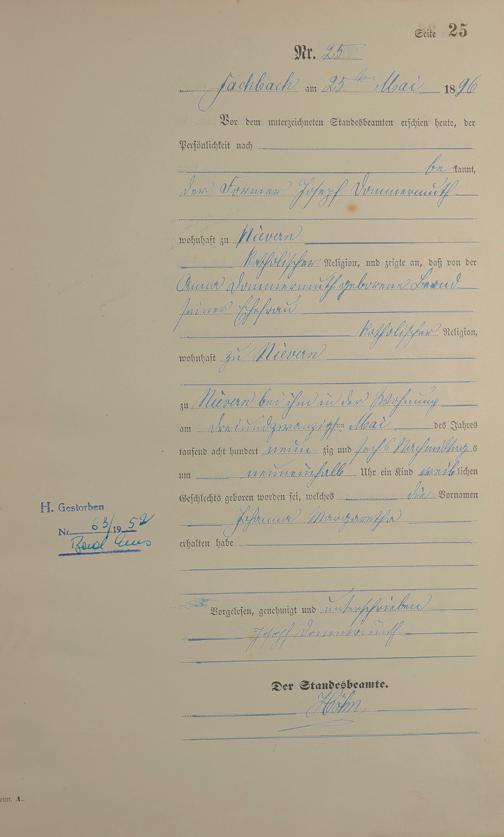 Seite 25
Nr. 25
Fachbach am 25ten Mai 1896
Vor dem unterzeichneten Standesbeamten erschien heute, der
Persönlichkeit nach
be kannt,
der Former Joseph Dommermuth
wohnhaft zu Nievern
katholischer Religion, und zeigte an, daß von der
Anna Dommermuth geborene Bernd
seiner Ehefrau
katholischer Religion,
wohnhaft zu Nievern
zu Nievern bei ihm in der Wohnung
am dreiundzwanzigsten Mai des Jahres
tausend acht hundert neun zig und sechs Nachmittags
um neuneinhalb Uhr ein Kind weiblichen
Geschlechts geboren worden sei, welches die Vornamen
Johanna Margaretha
erhalten habe
H. Gestorben
Nr. 63/1952
Bad Ems
Vorgelesen, genehmigt und unterschrieben
Joseph Dommermuth
Der Standesbeamte.
Höhn